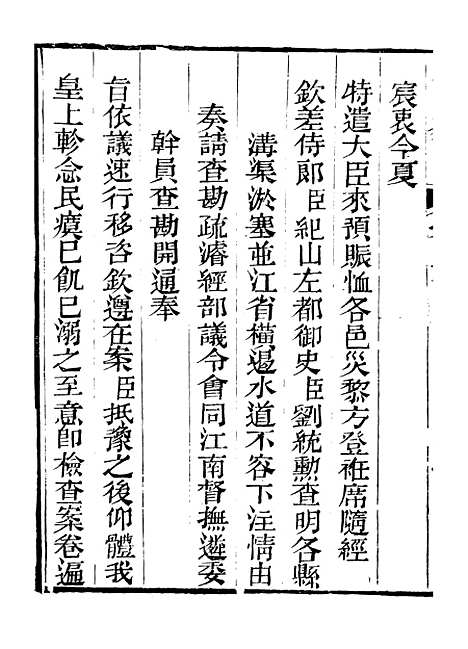 宸衷今夏
特遣大臣來預賑恤各邑災黎方登袵席隨經
欽差侍郎臣紀山左都御史臣劉統勲查明各縣
溝渠淤塞並江省橫遏水道不容下注情由
奏請查勘疏濬經部議令會同江南督撫遴委
幹員查勘開通奉
旨依議速行移咨欽遵在案臣抵豫之後仰體我
皇上軫念民瘼已飢已溺之至意卽檢查案卷遍